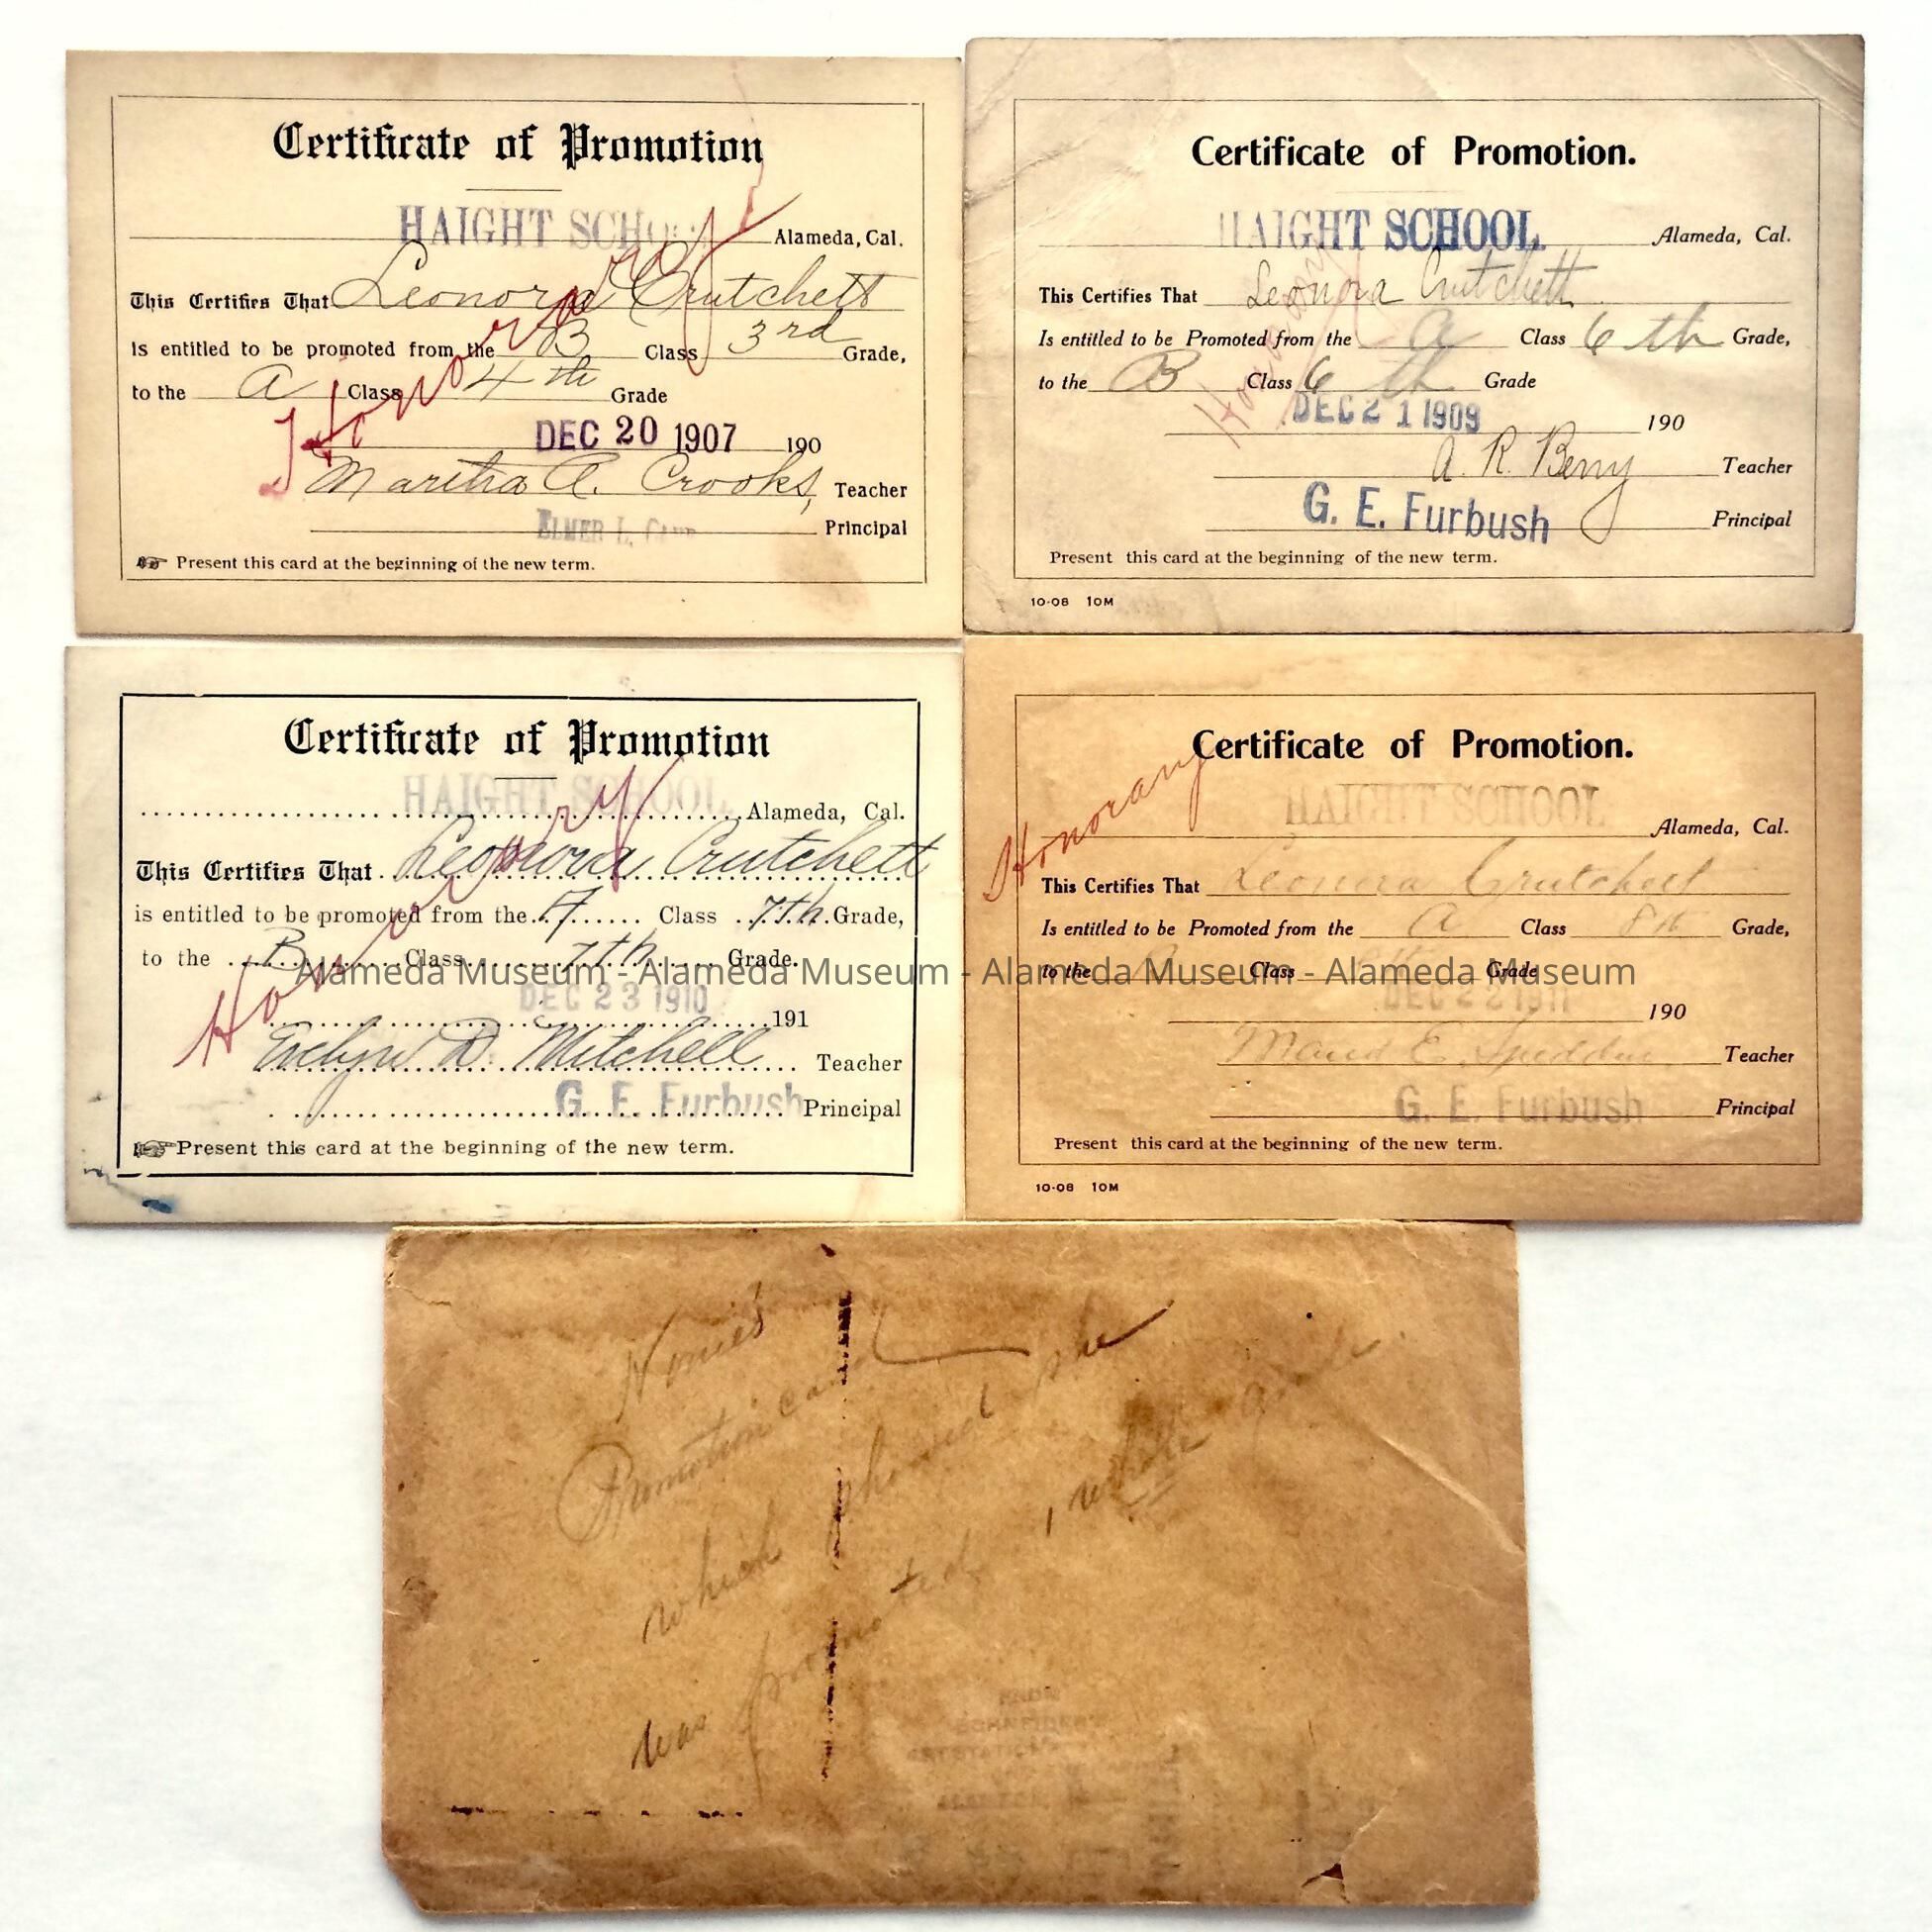 Certificate of Promotion
HAIGHT SCHOOL Alameda, Cal.
This Certifies That Leonora Crutchett
is entitled to be promoted from the B Class 3rd Grade,
to the A Class 4th Grade
DEC 20 1907 190
Martha A. Crooks, Teacher
ELMER L. Principal
Present this card at the beginning of the new term.
Honorary
Certificate of Promotion.
HAIGHT SCHOOL Alameda, Cal.
This Certifies That Leonora Crutchett
Is entitled to be Promoted from the A Class 6th Grade,
to the B Class 6th Grade
DEC 21 1909 190
A. R. Berry Teacher
G. E. Furbush Principal
Present this card at the beginning of the new term.
10-08 10M
Honorary
Certificate of Promotion
HAIGHT SCHOOL
Alameda, Cal.
This Certifies That Leonora Crutchett
is entitled to be promoted from the A Class 7th Grade,
to the B Class 7th Grade.
DEC 23 1910
191
Evelyn D. Mitchell Teacher
G. E. Furbush Principal
Present this card at the beginning of the new term.
Honorary
Certificate of Promotion.
HAIGHT SCHOOL
Alameda, Cal.
Honorary
This Certifies That Leonora Crutchett
Is entitled to be Promoted from the A Class 8th Grade,
to the Class Grade
DEC 22 1911
190
Maud E. Teacher
G. E. Furbush Principal
Present this card at the beginning of the new term.
10-08 10M
Alameda Museum - Alameda Museum - Alameda Museum - Alameda Museum
Nonie's
Promotion card
which showed she
was promoted, while
FROM
SCHNEIDER